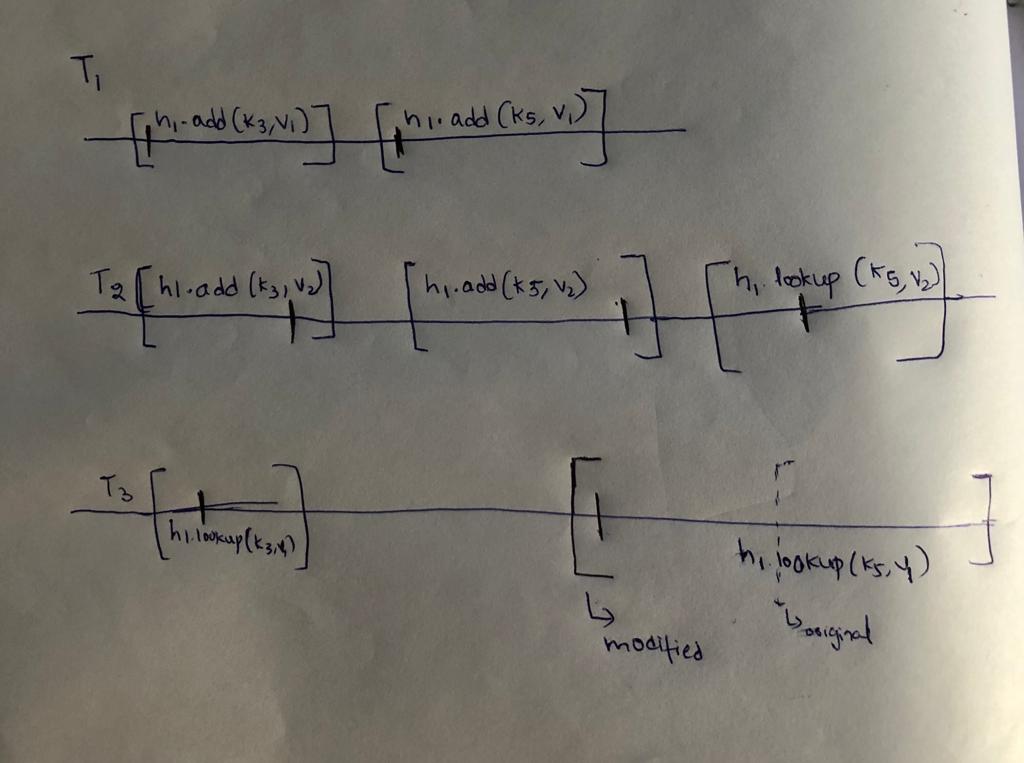 T1
h1.add(k3,v1) h1.add(k5,v1)
T2 h1.add(k3,v2) h1.add(k5,v2) h1.lookup(k5,v2)
T3
h1.lookup(k3,v1)
h1.lookup(k5,v1)
↳ modified
↳ original